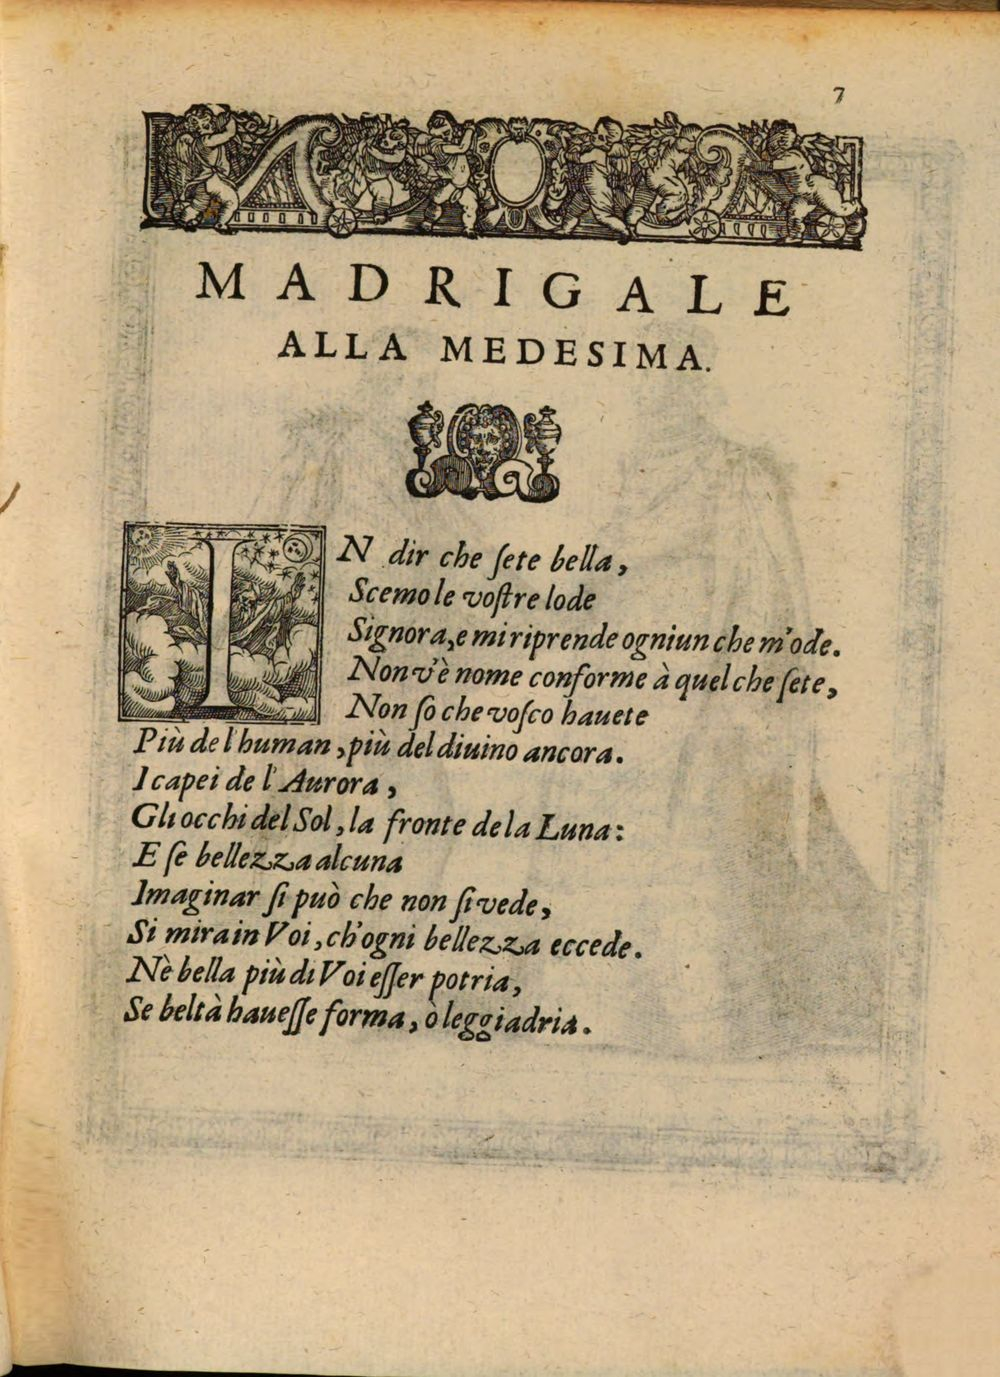 7
MADRIGALE
ALLA MEDESIMA.
IN dir che ſete bella,
Scemo le voſtre lode
Signora, e mi riprende ogniun che m'ode.
Non v'è nome conforme à quel che ſete,
Non ſo che voſco hauete
Più de l'human, più del diuino ancora.
I capei de l'Aurora,
Gli occhi del Sol, la fronte de la Luna:
E ſe bellezza alcuna
Imaginar ſi può che non ſi vede,
Si mira in Voi, ch'ogni bellezza eccede.
Nè bella più di Voi eſſer potria,
Se beltà haueſſe forma, ò leggiadria.